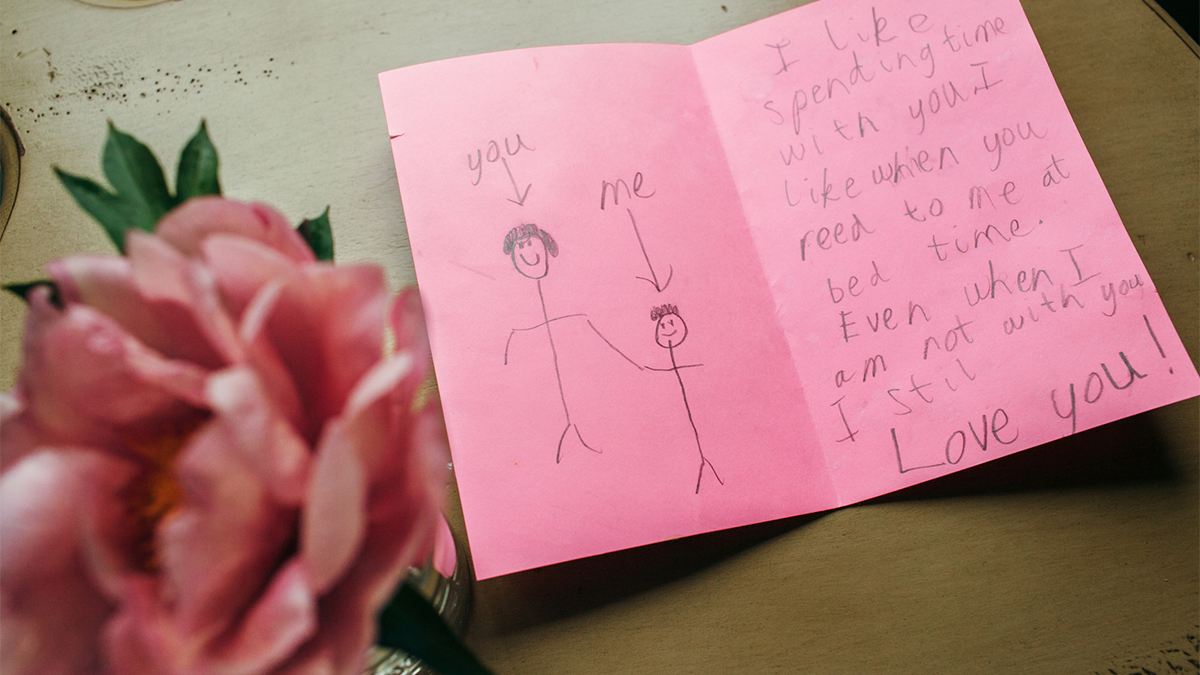 you
me
I like
spending time
with you I
like when you
reed to me at
bed time.
Even when I
am not with you
I stil
Love you!